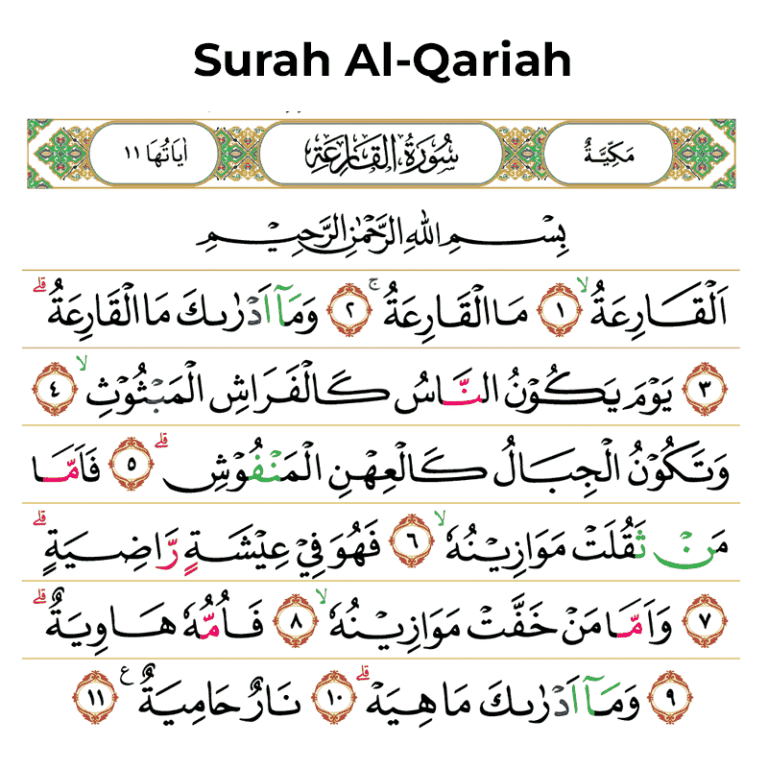 Surah Al-Qariah
مَكِّيَّةٌ سُورَةُ الْقَارِعَةِ اٰيَاتُهَا ١١
بِسْمِ اللهِ الرَّحْمٰنِ الرَّحِيْمِ
اَلْقَارِعَةُ ۙ ١ مَا الْقَارِعَةُ ۚ ٢ وَمَآ اَدْرٰىكَ مَا الْقَارِعَةُ ۗ
٣ يَوْمَ يَكُوْنُ النَّاسُ كَالْفَرَاشِ الْمَبْثُوْثِ ۙ ٤
وَتَكُوْنُ الْجِبَالُ كَالْعِهْنِ الْمَنْفُوْشِ ۗ ٥ فَاَمَّا
مَنْ ثَقُلَتْ مَوَازِيْنُهٗ ۙ ٦ فَهُوَ فِيْ عِيْشَةٍ رَّاضِيَةٍ ۗ
٧ وَاَمَّا مَنْ خَفَّتْ مَوَازِيْنُهٗ ۙ ٨ فَاُمُّهٗ هَاوِيَةٌ ۗ
٩ وَمَآ اَدْرٰىكَ مَا هِيَهْ ۗ ١٠ نَارٌ حَامِيَةٌ ࣖ ١١